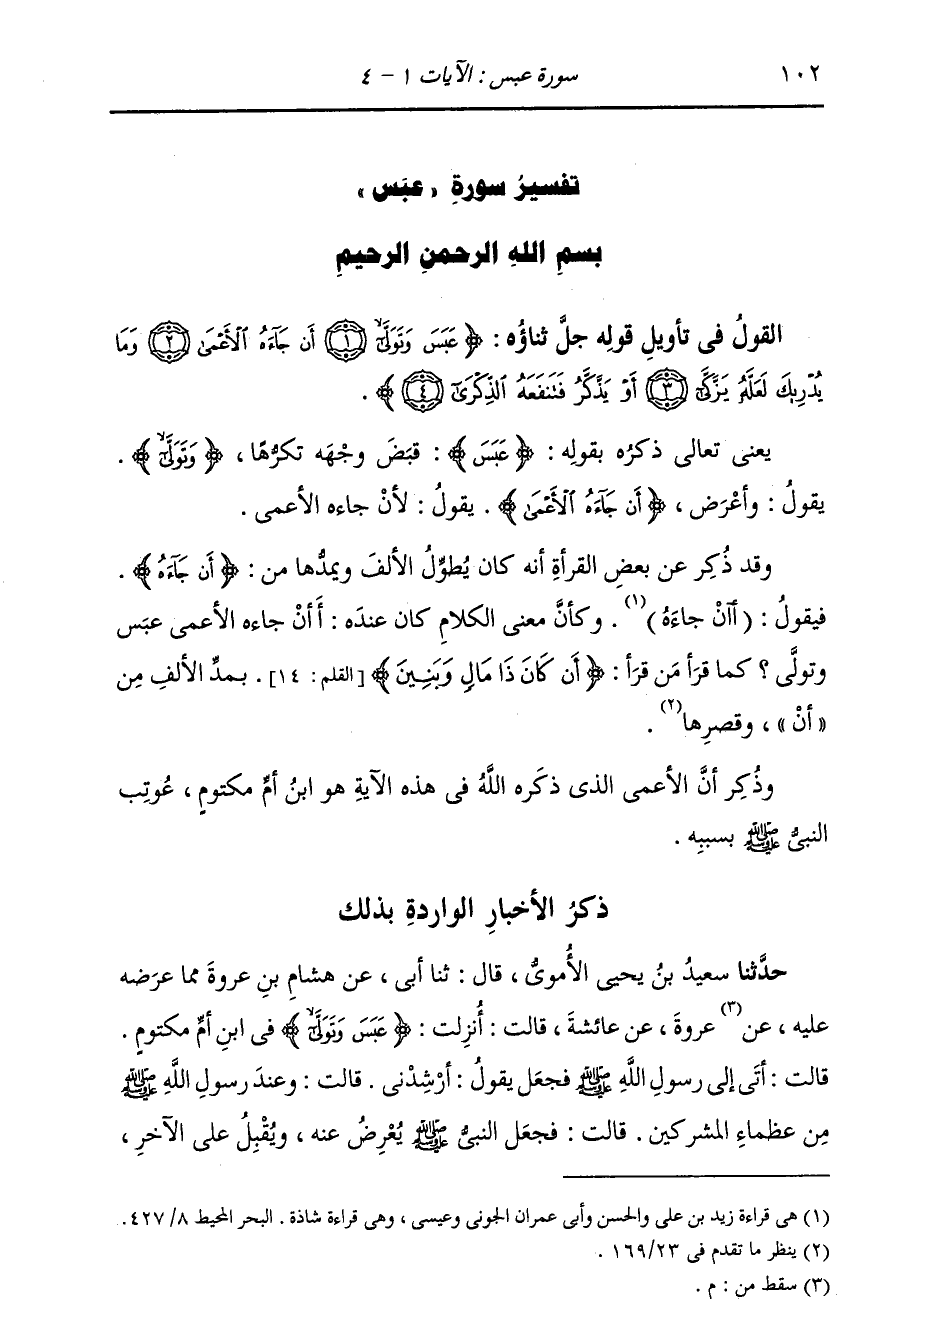 ١٠٢ سورة عبس : الآيات ١ - ٤
تفسيرُ سورةِ « عبَس »
بسمِ اللهِ الرحمنِ الرحيمِ
القولُ فى تأويلِ قولِه جلَّ ثناؤُه : ﴿ عَبَسَ وَتَوَلَّىٰٓ ۝١ أَن جَآءَهُ ٱلْأَعْمَىٰ ۝٢ وَمَا
يُدْرِيكَ لَعَلَّهُۥ يَزَّكَّىٰٓ ۝٣ أَوْ يَذَّكَّرُ فَتَنفَعَهُ ٱلذِّكْرَىٰٓ ۝٤ ﴾ .
يعنى تعالى ذكرُه بقولِه : ﴿ عَبَسَ ﴾ : قبَضَ وجْهَه تكرُّهًا ، ﴿ وَتَوَلَّىٰٓ ﴾ .
يقولُ : وأعْرَض ، ﴿ أَن جَآءَهُ ٱلْأَعْمَىٰ ﴾ . يقولُ : لأنْ جاءه الأعمى .
وقد ذُكِر عن بعضِ القرأةِ أنه كان يُطوِّلُ الألفَ ويمدُّها من : ﴿ أَن جَآءَهُ ﴾ .
فيقولُ : ( آانْ جاءَهُ )(١) . وكأنَّ معنى الكلامِ كان عندَه : أَأنْ جاءه الأعمى عبَس
وتولَّى ؟ كما قرَأ مَن قرَأ : ﴿ أَن كَانَ ذَا مَالٍ وَبَنِينَ ﴾ [القلم : ١٤] . بمدِّ الألفِ مِن
« أنْ » ، وقصرِها(٢) .
وذُكِر أنَّ الأعمى الذى ذكَره اللَّهُ فى هذه الآيةِ هو ابنُ أمِّ مكتومٍ ، عُوتِب
النبىُّ ﷺ بسببِه .
ذكرُ الأخبارِ الواردةِ بذلك
حدَّثنا سعيدُ بنُ يحيى الأُموىُّ ، قال : ثنا أبى ، عن هشامِ بنِ عروةَ مما عرَضه
عليه ، عن(٣) عروةَ ، عن عائشةَ ، قالت : أُنزِلت : ﴿ عَبَسَ وَتَوَلَّىٰٓ ﴾ فى ابنِ أمِّ مكتومٍ .
قالت : أتَى إلى رسولِ اللَّهِ ﷺ فجعَل يقولُ : أرْشِدْنى . قالت : وعندَ رسولِ اللَّهِ ﷺ
مِن عظماءِ المشركين . قالت : فجعَل النبىُّ ﷺ يُعْرِضُ عنه ، ويُقْبِلُ على الآخرِ ،
(١) هى قراءة زيد بن على والحسن وأبى عمران الجونى وعيسى ، وهى قراءة شاذة . البحر المحيط ٨/ ٤٢٧.
(٢) ينظر ما تقدم فى ٢٣/ ١٦٩ .
(٣) سقط من : م .